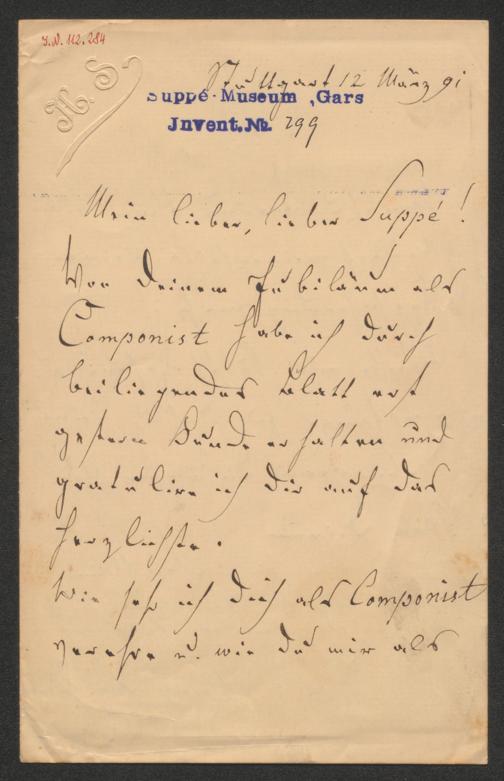 J.N. 112.284
H. S.
Stuttgart 12 März 91
Suppé-Museum, Gars
Jnvent. No. 299
Mein lieber, lieber Suppé!
Von Deinem Jubiläum als
Componist habe ich durch
beiliegendes Blatt erst
gestern Kunde erhalten und
gratulire ich Dir auf das
herzlichste.
Wie sehr ich Dich als Componist
verehre u. wie Du mir als